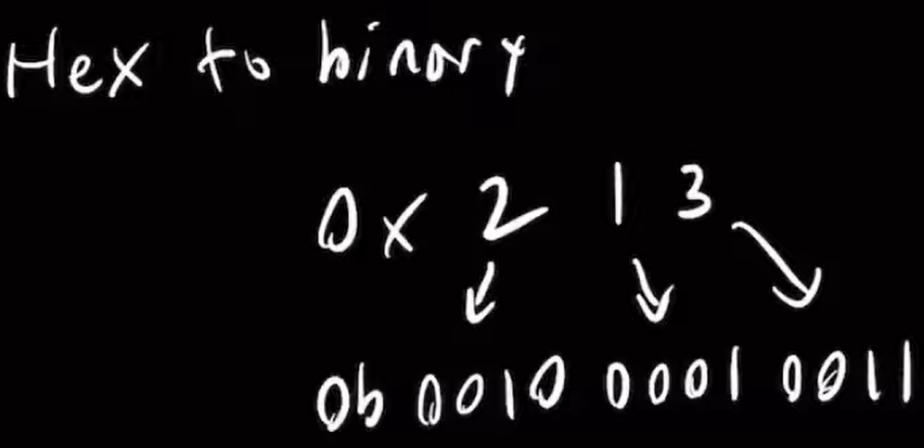 Hex to binary
0x 2 1 3
0b 0010 0001 0011